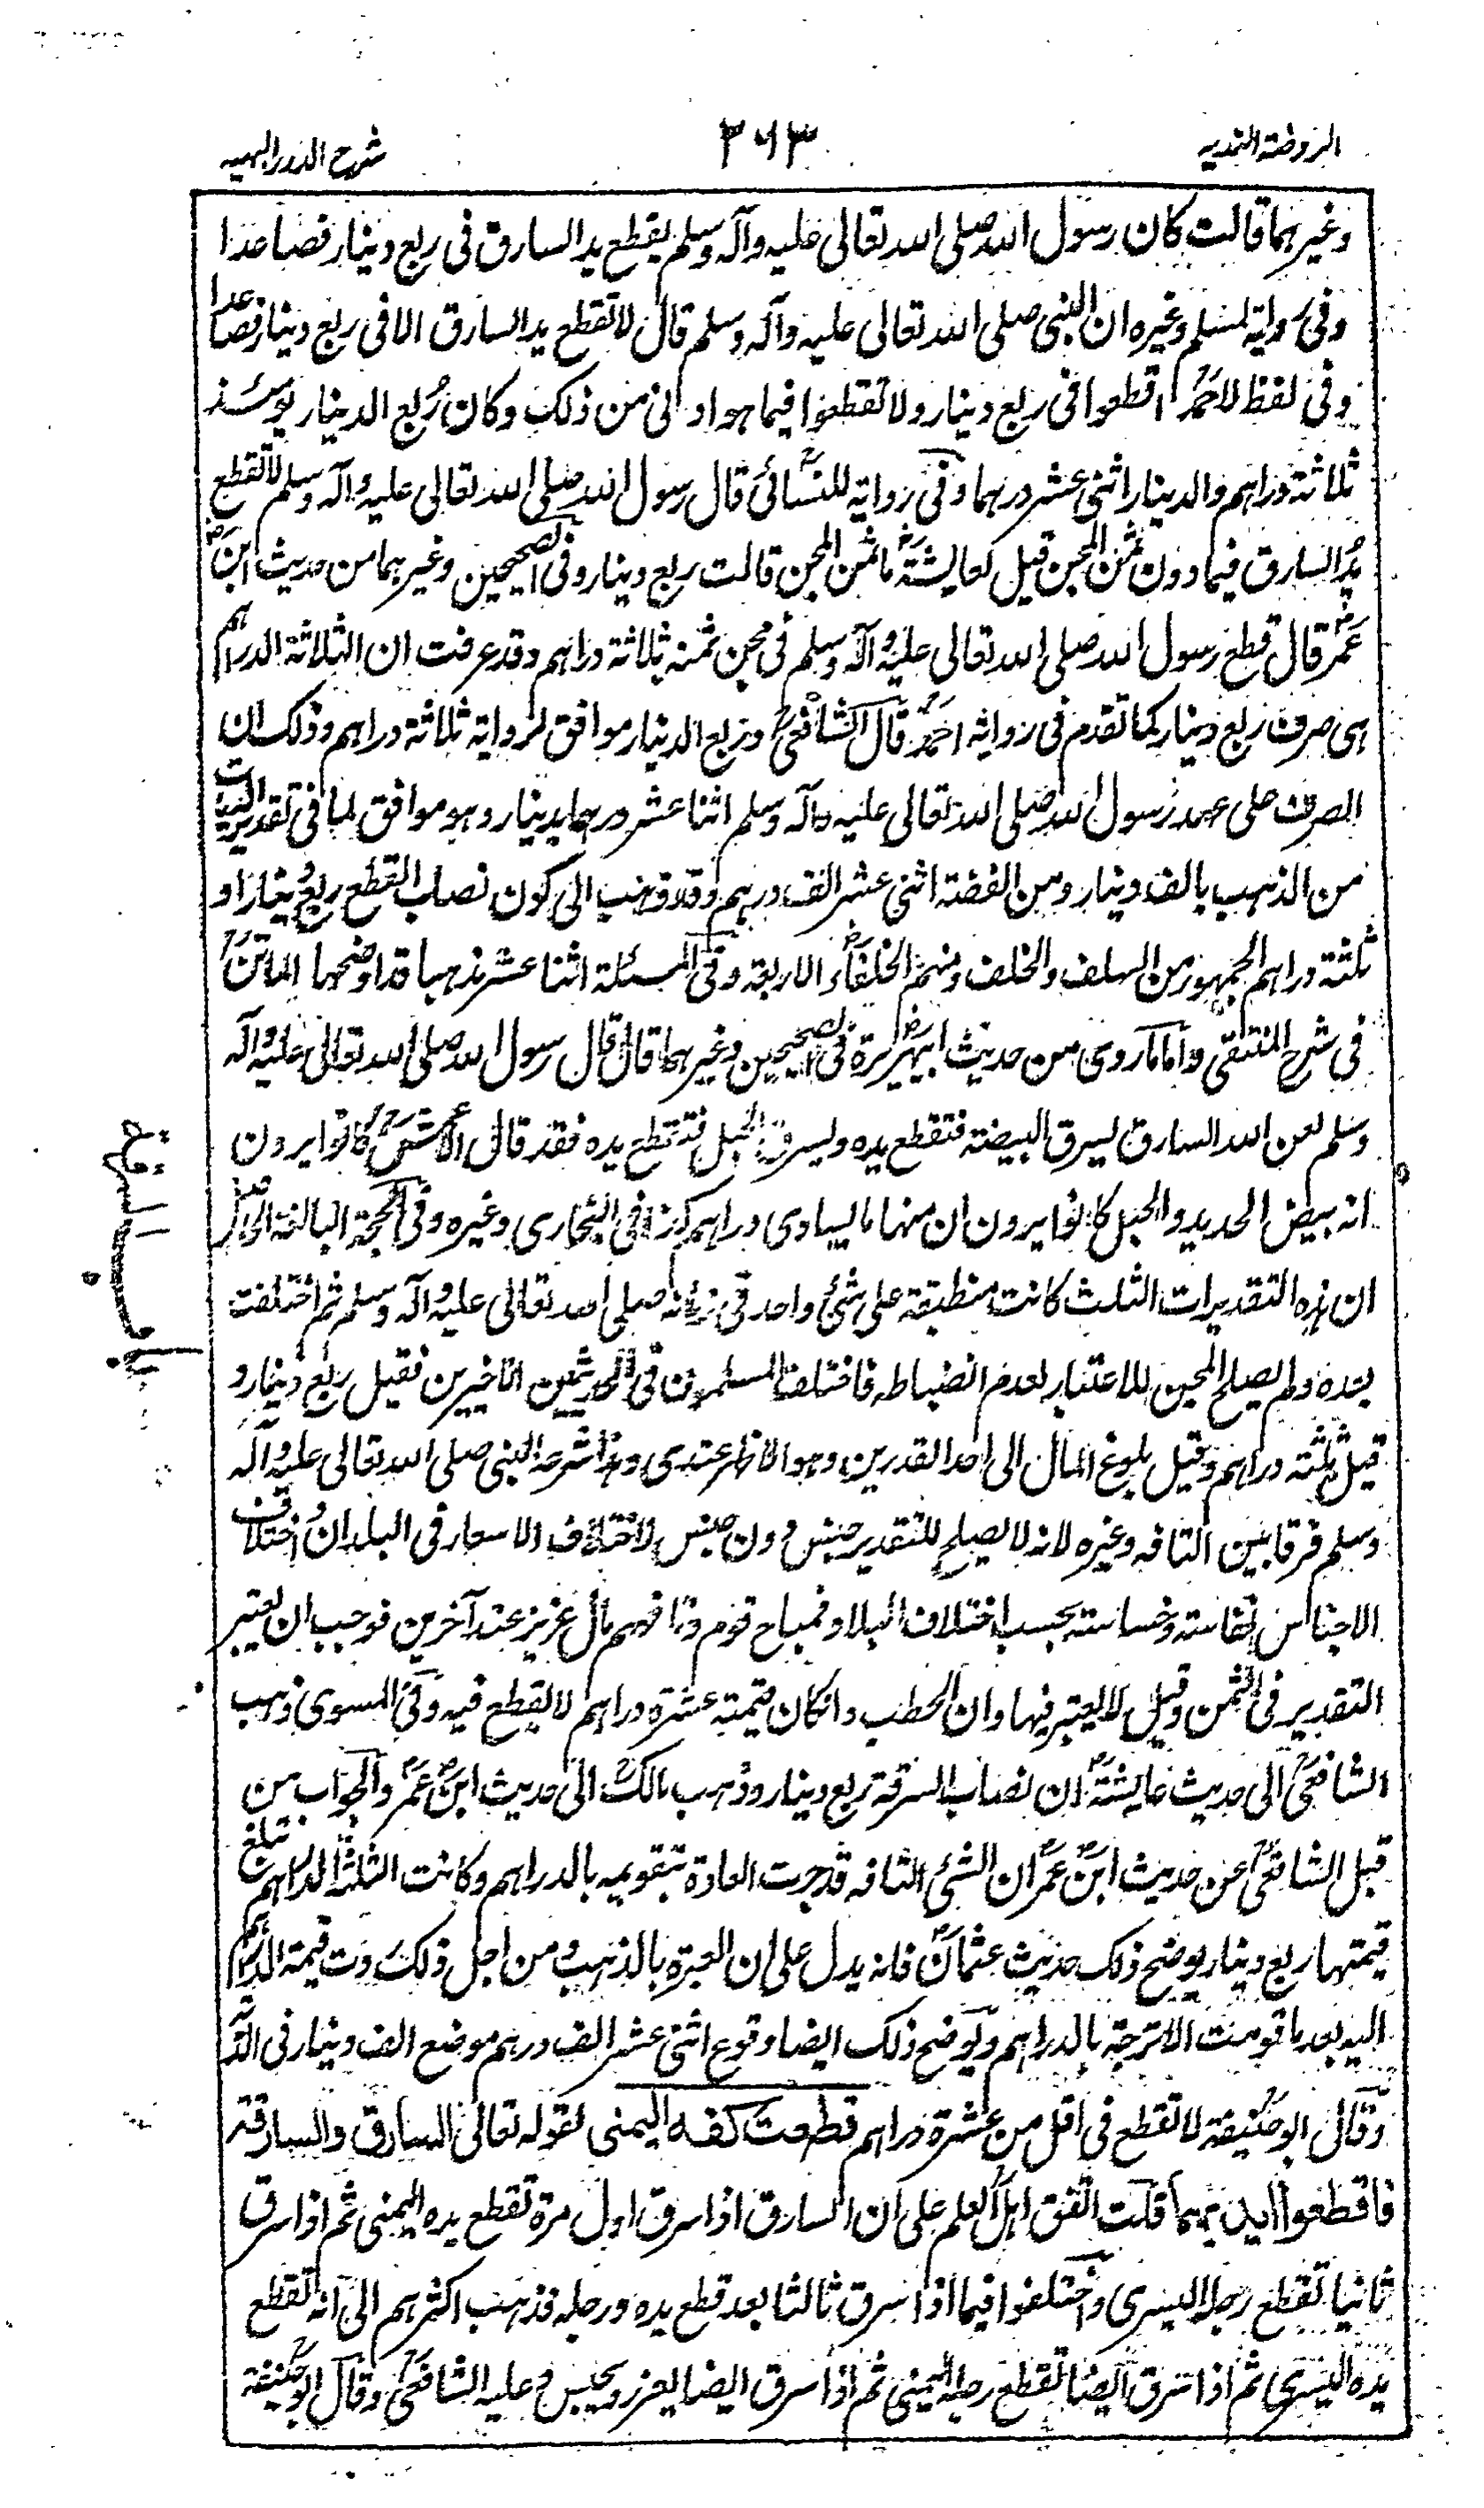 الروضة الندية
٣٦٣
شرح الدرر البهية
وغيرهما قالت كان رسول الله صلى الله تعالى عليه وآله وسلم يقطع يد السارق فى ربع دينار فصاعدا
وفى رواية لمسلم وغيره ان النبى صلى الله تعالى عليه وآله وسلم قال لا تقطع يد السارق الا فى ربع دينار فصاعدا
وفى لفظ لاحمد اقطعوا فى ربع دينار ولا تقطعوا فيما هو ادنى من ذلك وكان ربع الدينار يومئذ
ثلاثة دراهم والدينار اثنى عشر درهما وفى رواية للنسائى قال رسول الله صلى الله تعالى عليه وآله وسلم لا تقطع
يد السارق فيما دون ثمن المجن قيل لعايشة ما ثمن المجن قالت ربع دينار وفى الصحيحين وغيرهما من حديث ابن
عمر قال قطع رسول الله صلى الله تعالى عليه وآله وسلم فى مجن ثمنه ثلاثة دراهم وقد عرفت ان الثلاثة الدراهم
هى صرف ربع دينار كما تقدم فى رواية احمد قال الشافعى وربع الدينار موافق لرواية ثلاثة دراهم وذلك ان
الصرف على عهد رسول الله صلى الله تعالى عليه وآله وسلم اثنا عشر درهما بدينار وهو موافق لما فى تقدير الديات
من الذهب بالف دينار ومن الفضة اثنى عشر الف درهم وقد ذهب الى كون نصاب القطع ربع دينار او
ثلثة دراهم الجمهور من السلف والخلف ومنهم الخلفاء الاربعة وفى المسئلة اثنا عشر مذهبا قد اوضحها الماتن
فى شرح المنتقى واما ما روى من حديث ابى هريرة فى الصحيحين وغيرهما قال قال رسول الله صلى الله تعالى عليه وآله
وسلم لعن الله السارق يسرق البيضة فتقطع يده ويسرق الحبل فتقطع يده فقد قال الاعمش كانوا يرون
انه بيض الحديد والحبل كانوا يرون ان منها ما يساوى دراهم كذا فى البخارى وغيره وفى الحجة البالغة الحاصل
ان هذه التقديرات الثلث كانت منطبقة على شئ واحد فى زمانه صلى الله تعالى عليه وآله وسلم ثم اختلفت
بعده ولم يصلح المجن للاعتبار لعدم انضباطه فاختلف المسلمون فى الحديثين الاخيرين فقيل ربع دينار و
قيل ثلثة دراهم وقيل بلوغ المال الى احد القدرين وهو الاظهر عندى وهذا شرعه النبى صلى الله تعالى عليه وآله
وسلم فرقا بين التافه وغيره لانه لا يصلح للتقدير جنس دون جنس لاختلاف الاسعار فى البلدان واختلاف
الاجناس نفاسة وخساسة بحسب اختلاف البلاد فمباح قوم وتافههم مال عزيز عند آخرين فوجب ان يعتبر
التقدير فى الثمن وقيل لا يعتبر فيها وان الحطب وان كان قيمته عشرة دراهم لا يقطع فيه وفى المسوى ذهب
الشافعى الى حديث عايشة ان نصاب السرقة ربع دينار وذهب مالك الى حديث ابن عمر والجواب من
قبل الشافعى عن حديث ابن عمر ان الشئ التافه قد جرت العادة بتقويمه بالدراهم وكانت الثلثة الدراهم تبلغ
قيمتها ربع دينار يوضح ذلك حديث عثمان فانه يدل على ان العبرة بالذهب ومن اجل ذلك ردت قيمة الدراهم
اليه بعد ما قومت الاترجة بالدراهم ويوضح ذلك ايضا وقوع اثنى عشر الف درهم موضع الف دينار فى الدية
وقال ابو حنيفة لا تقطع فى اقل من عشرة دراهم قطعت كفه اليمنى لقوله تعالى السارق والسارقة
فاقطعوا ايديهما قلت اتفق اهل العلم على ان السارق اذا سرق اول مرة تقطع يده اليمنى ثم اذا سرق
ثانيا تقطع رجله اليسرى واختلفوا فيما اذا سرق ثالثا بعد قطع يده ورجله فذهب اكثرهم الى انه تقطع
يده اليسرى ثم اذا سرق ايضا تقطع رجله اليمنى ثم اذا سرق ايضا يعزر ويحبس وعليه الشافعى وقال ابو حنيفة